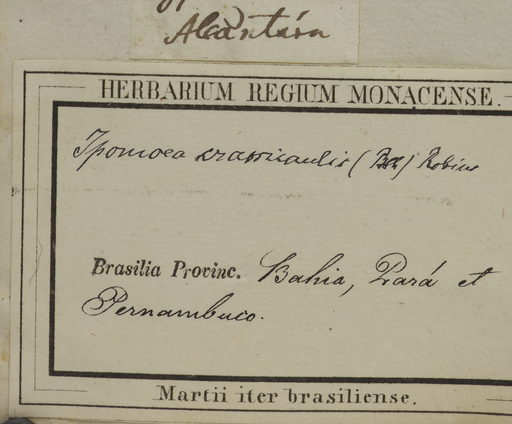 Alcantára
HERBARIUM REGIUM MONACENSE.
Ipomoea crassicaulis (Bth) Robins
Brasilia Provinc. Bahia, Pará et
Pernambuco.
Martii iter brasiliense.